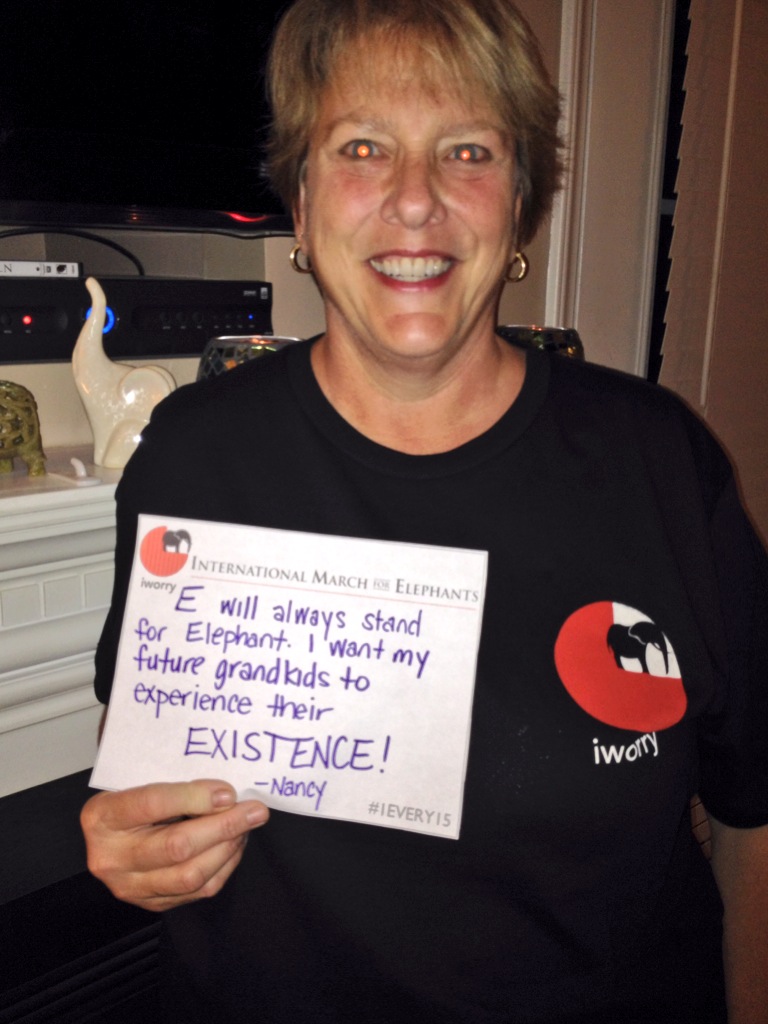 INTERNATIONAL MARCH FOR ELEPHANTS
iworry
E will always stand
for Elephant. I want my
future grandkids to
experience their
EXISTENCE!
-Nancy
#1EVERY15
iworry